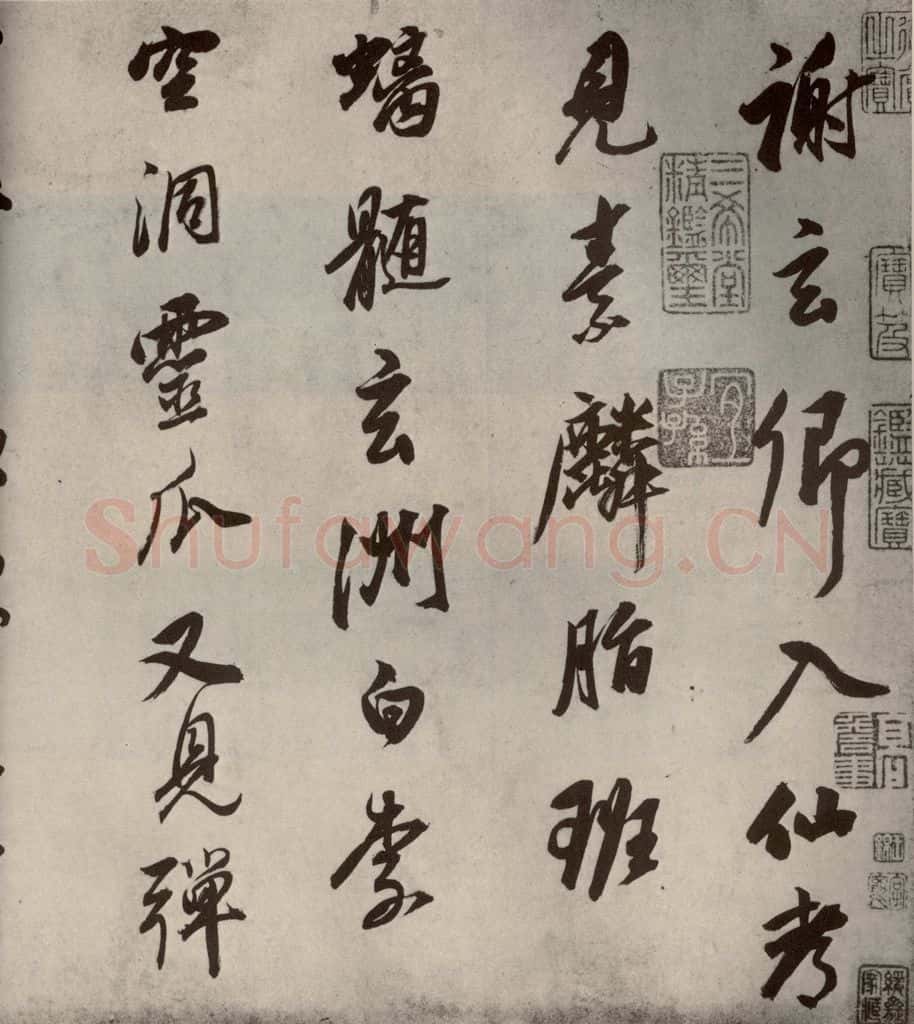 謝玄卿入仙考
見素麟脂班
螭髓玄洲白李
空洞靈瓜又見彈
三希堂
精鑑璽
宜子孫
Shufawang.CN